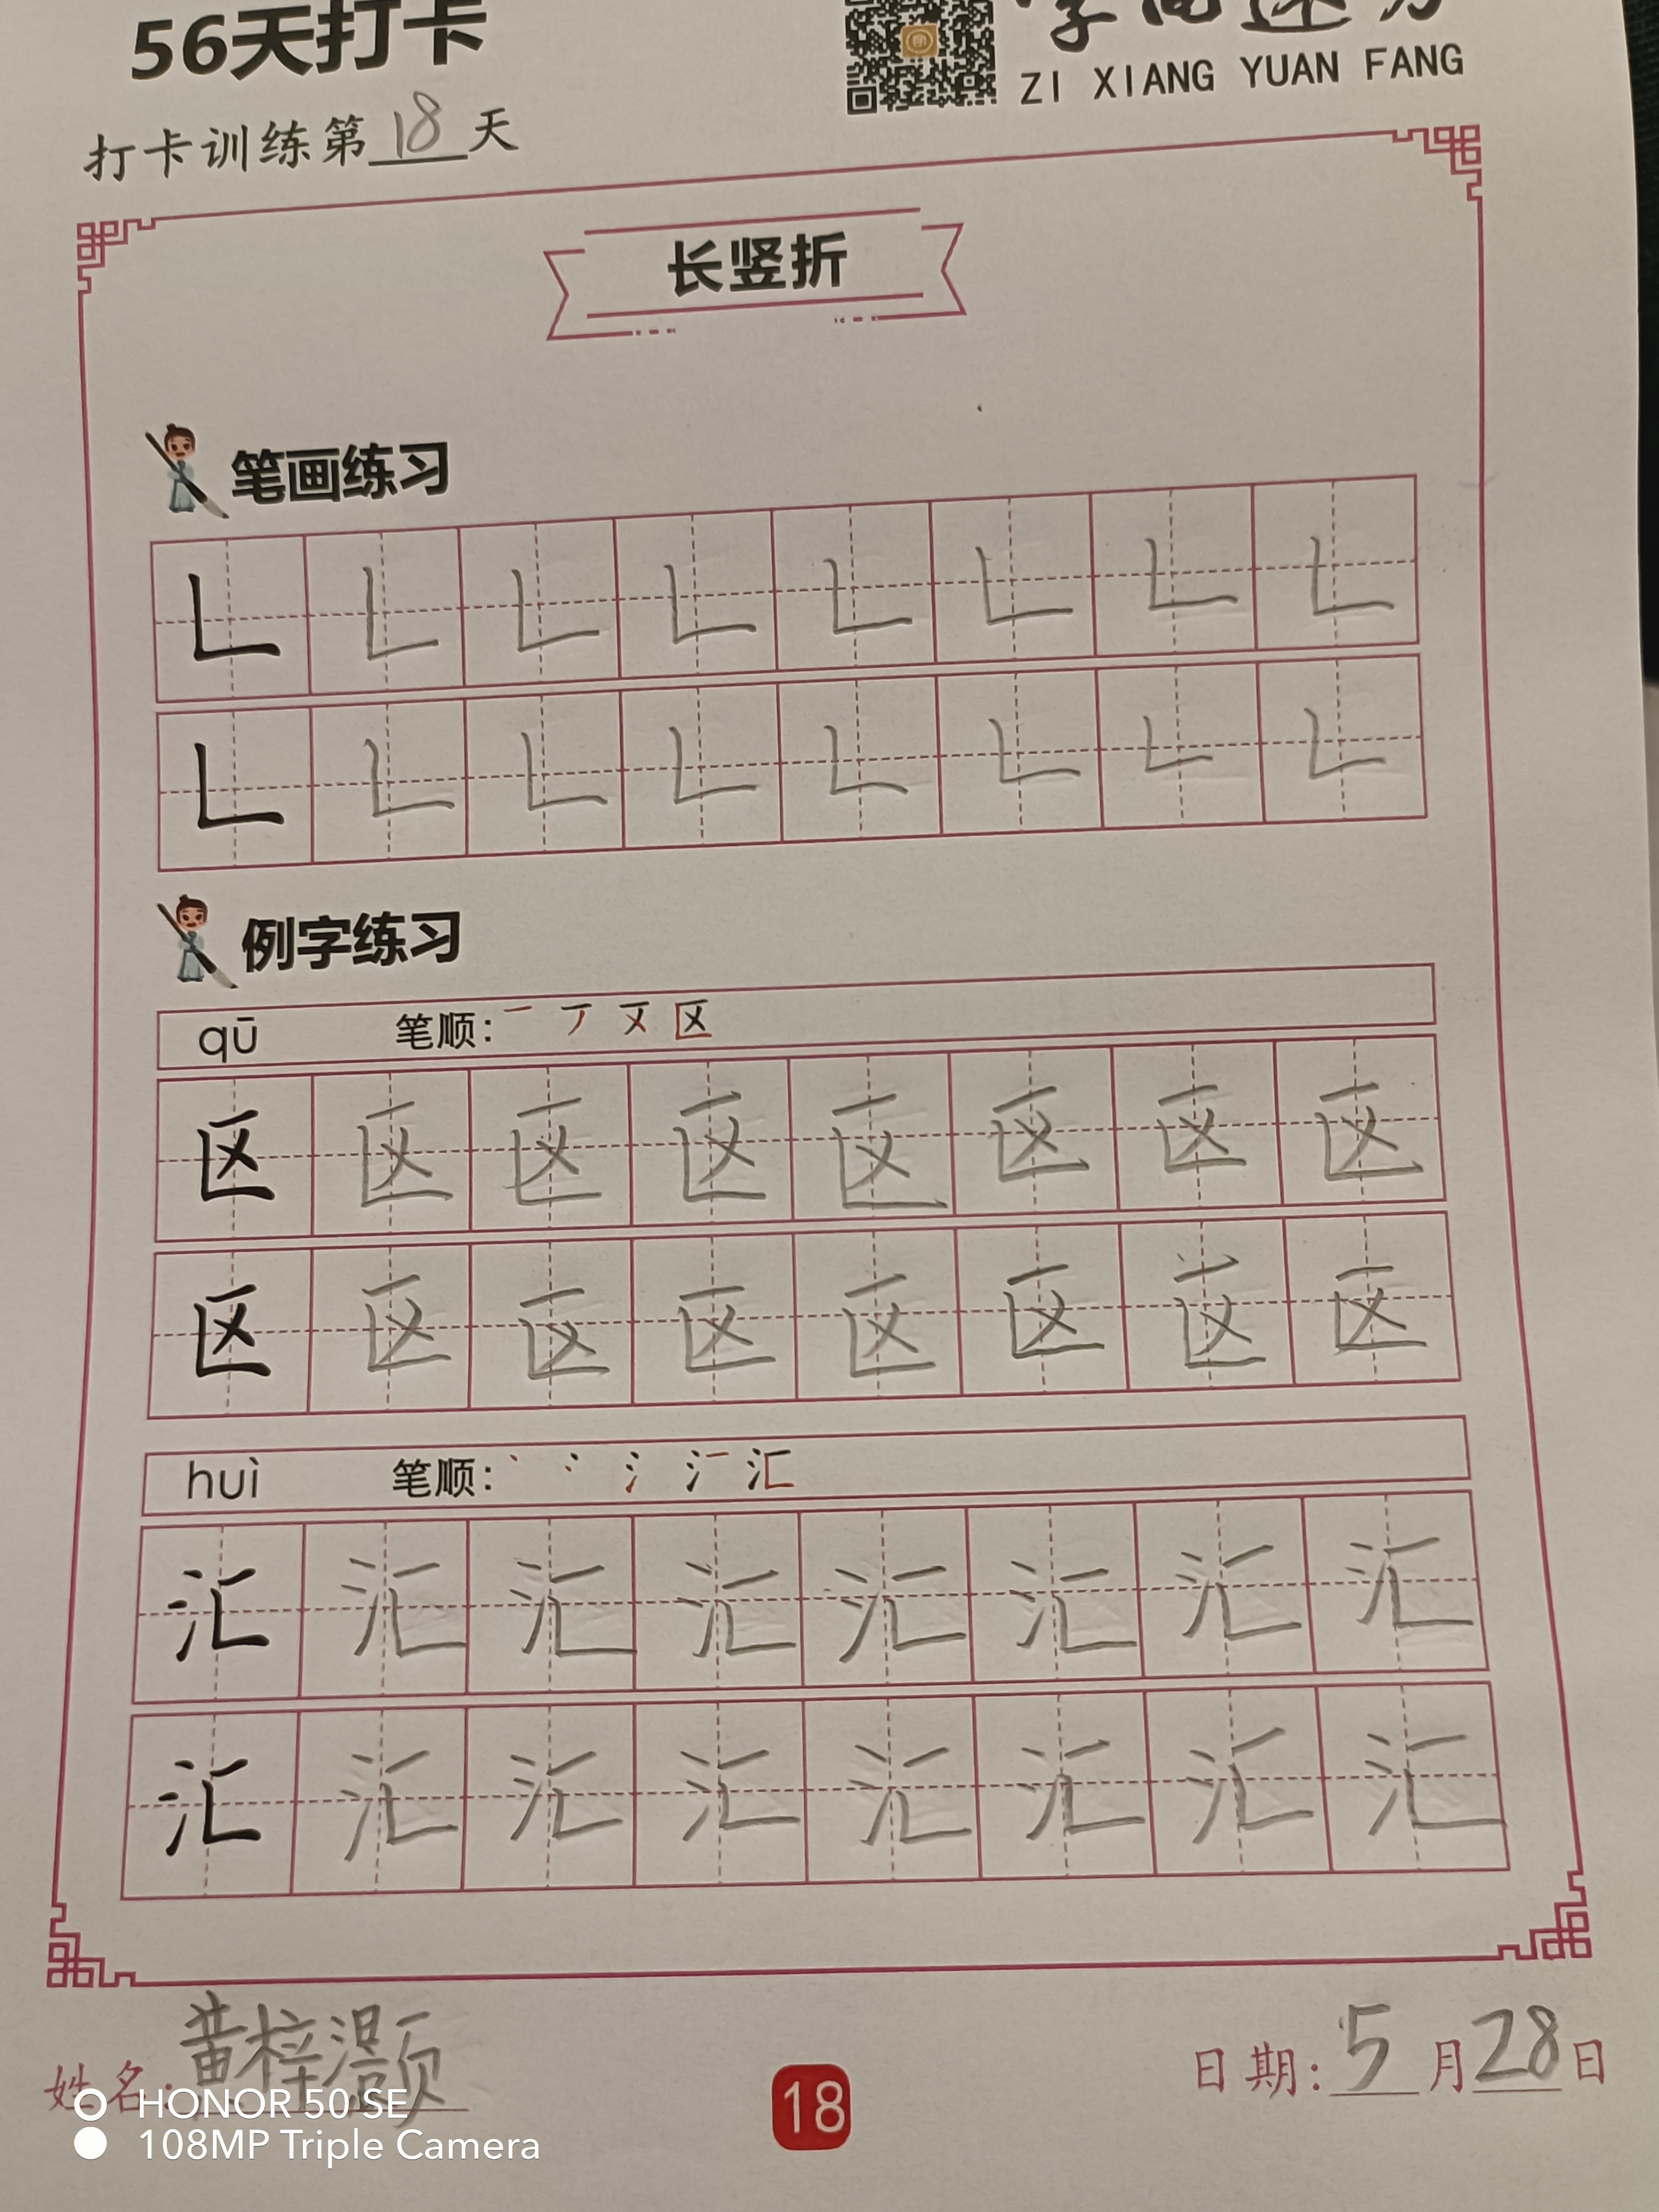 56天打卡
ZI XIANG YUAN FANG
打卡训练第18天
长竖折
笔画练习
例字练习
qū 笔顺:
区 区 区 区 区 区 区 区
区 区 区 区 区 区 区 区
huì 笔顺:
汇 汇 汇 汇 汇 汇 汇 汇
汇 汇 汇 汇 汇 汇 汇 汇
姓名:黄梓灏
日期:5月28日
HONOR 50 SE
18
108MP Triple Camera